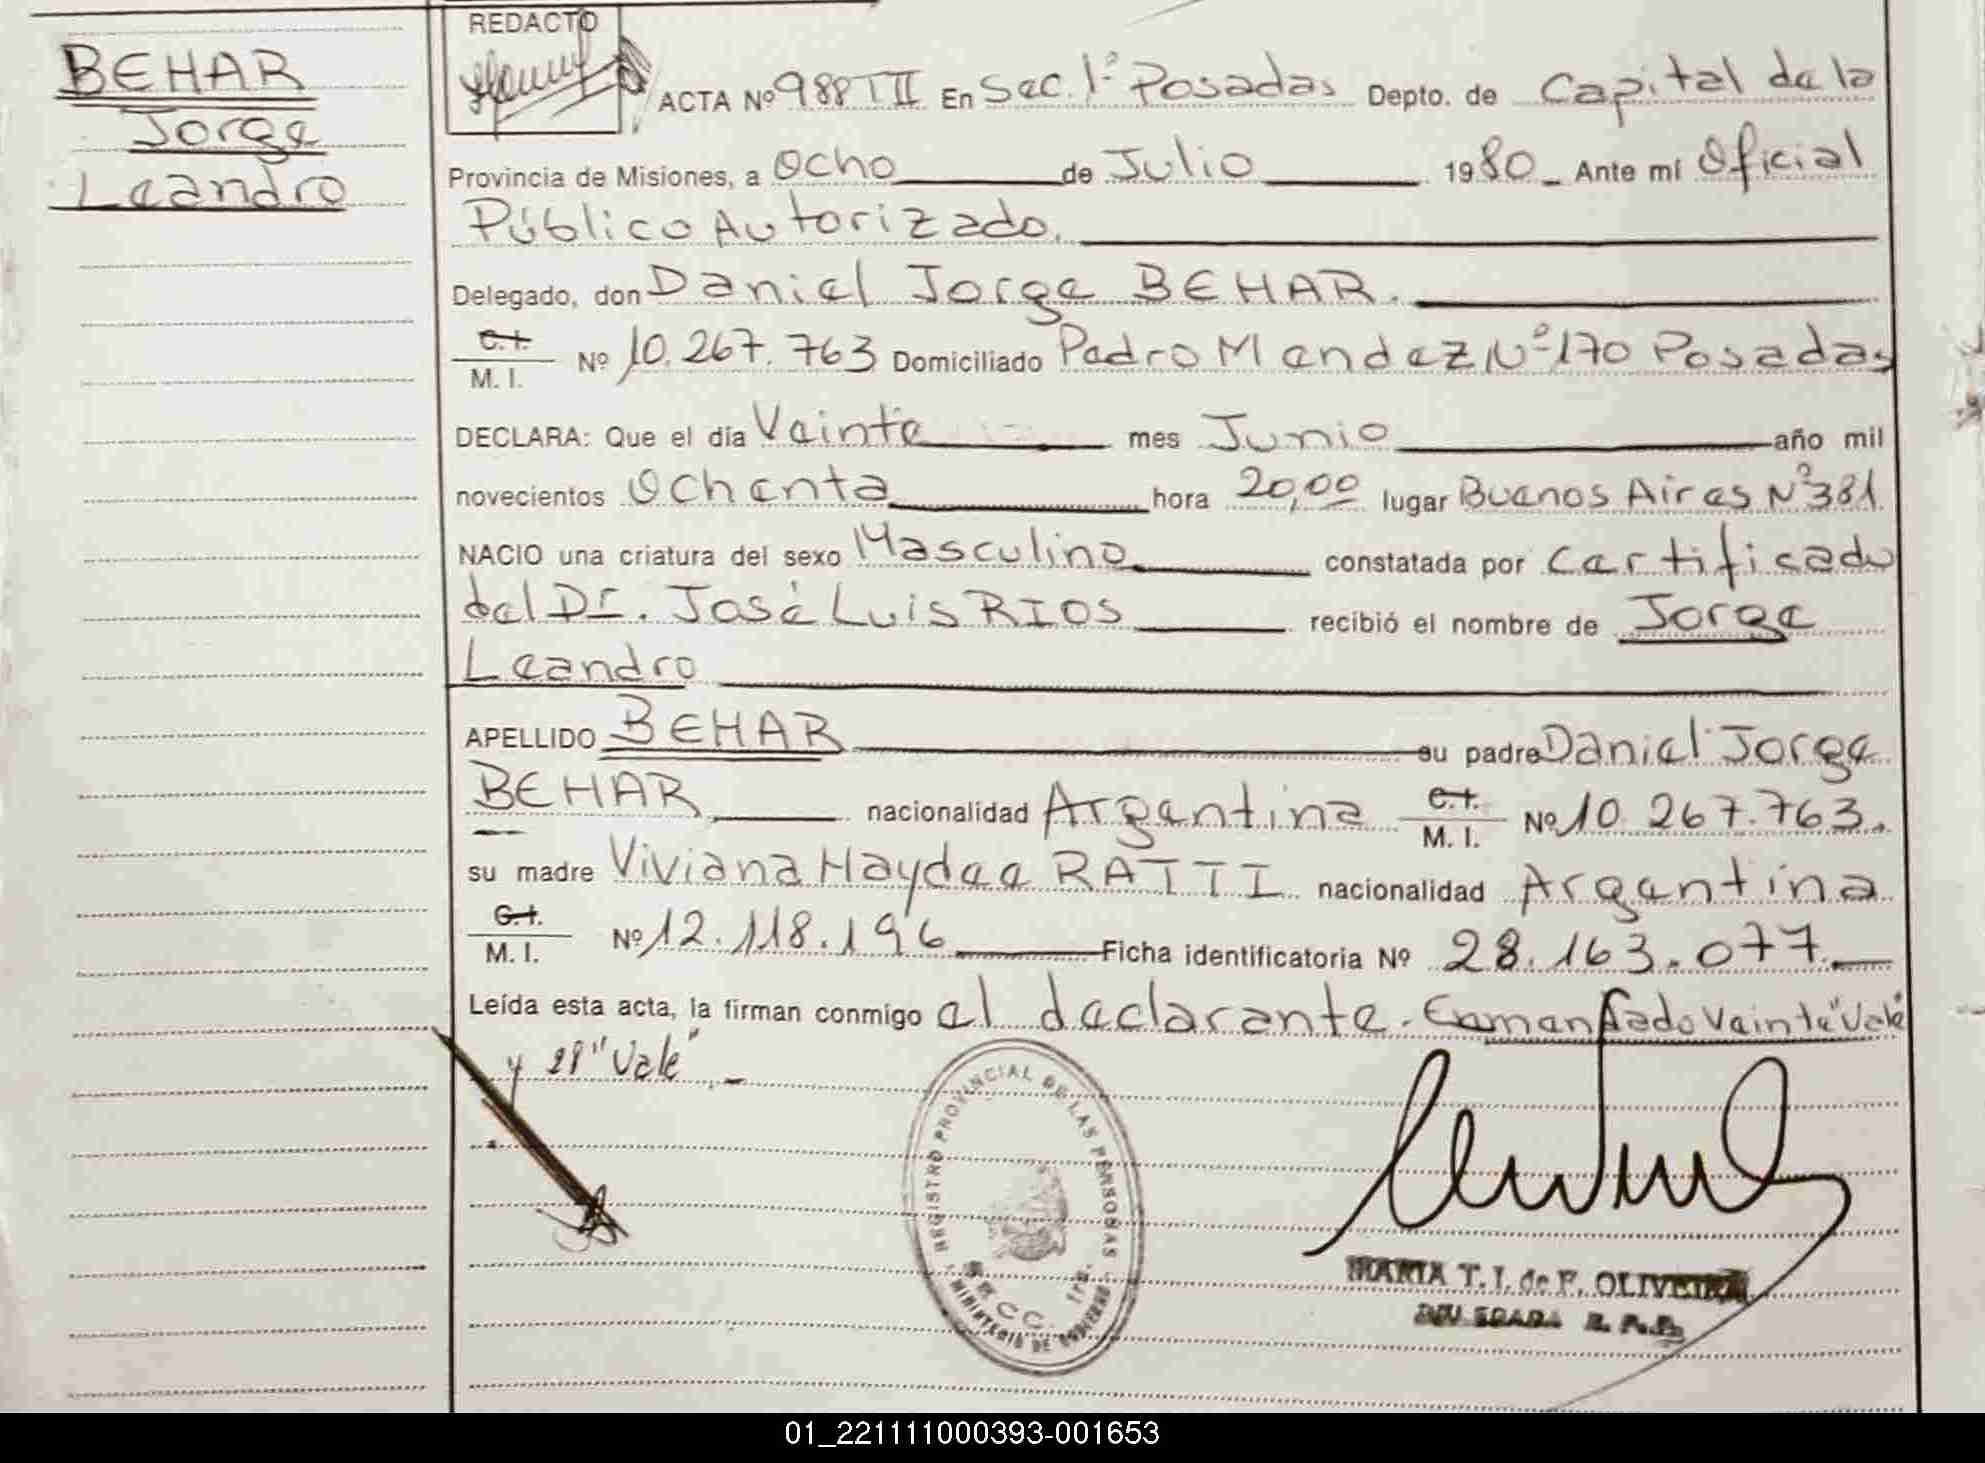 BEHAR
Jorge
Leandro
REDACTO
ACTA Nº 988 TII En Sec. 1ª Posadas Depto. de Capital de la
Provincia de Misiones, a Ocho de Julio 1980 Ante mí Oficial
Público Autorizado.
Delegado, don Daniel Jorge BEHAR.
C.I. M. I. Nº 10.267.763 Domiciliado Pedro Mendez Nº 170 Posadas
DECLARA: Que el día Veinte mes Junio año mil
novecientos Ochenta hora 20,00 lugar Buenos Aires Nº 381
NACIO una criatura del sexo Masculino constatada por Certificado
del Dr. José Luis RIOS recibió el nombre de Jorge
Leandro
APELLIDO BEHAR su padre Daniel Jorge
BEHAR nacionalidad Argentina C.I. M. I. Nº 10.267.763.
su madre Viviana Haydee RATTI nacionalidad Argentina
C.I. M. I. Nº 12.118.196 Ficha identificatoria Nº 28.163.077.
Leída esta acta, la firman conmigo el declarante. Enmendado Veinte "Vale"
y 28 "Vale"
REGISTRO PROVINCIAL DE LAS PERSONAS
MINISTERIO DE GOBIERNO
MARIA T. I. de F. OLIVEIRA
DELEGADA R. P. P.
01_221111000393-001653